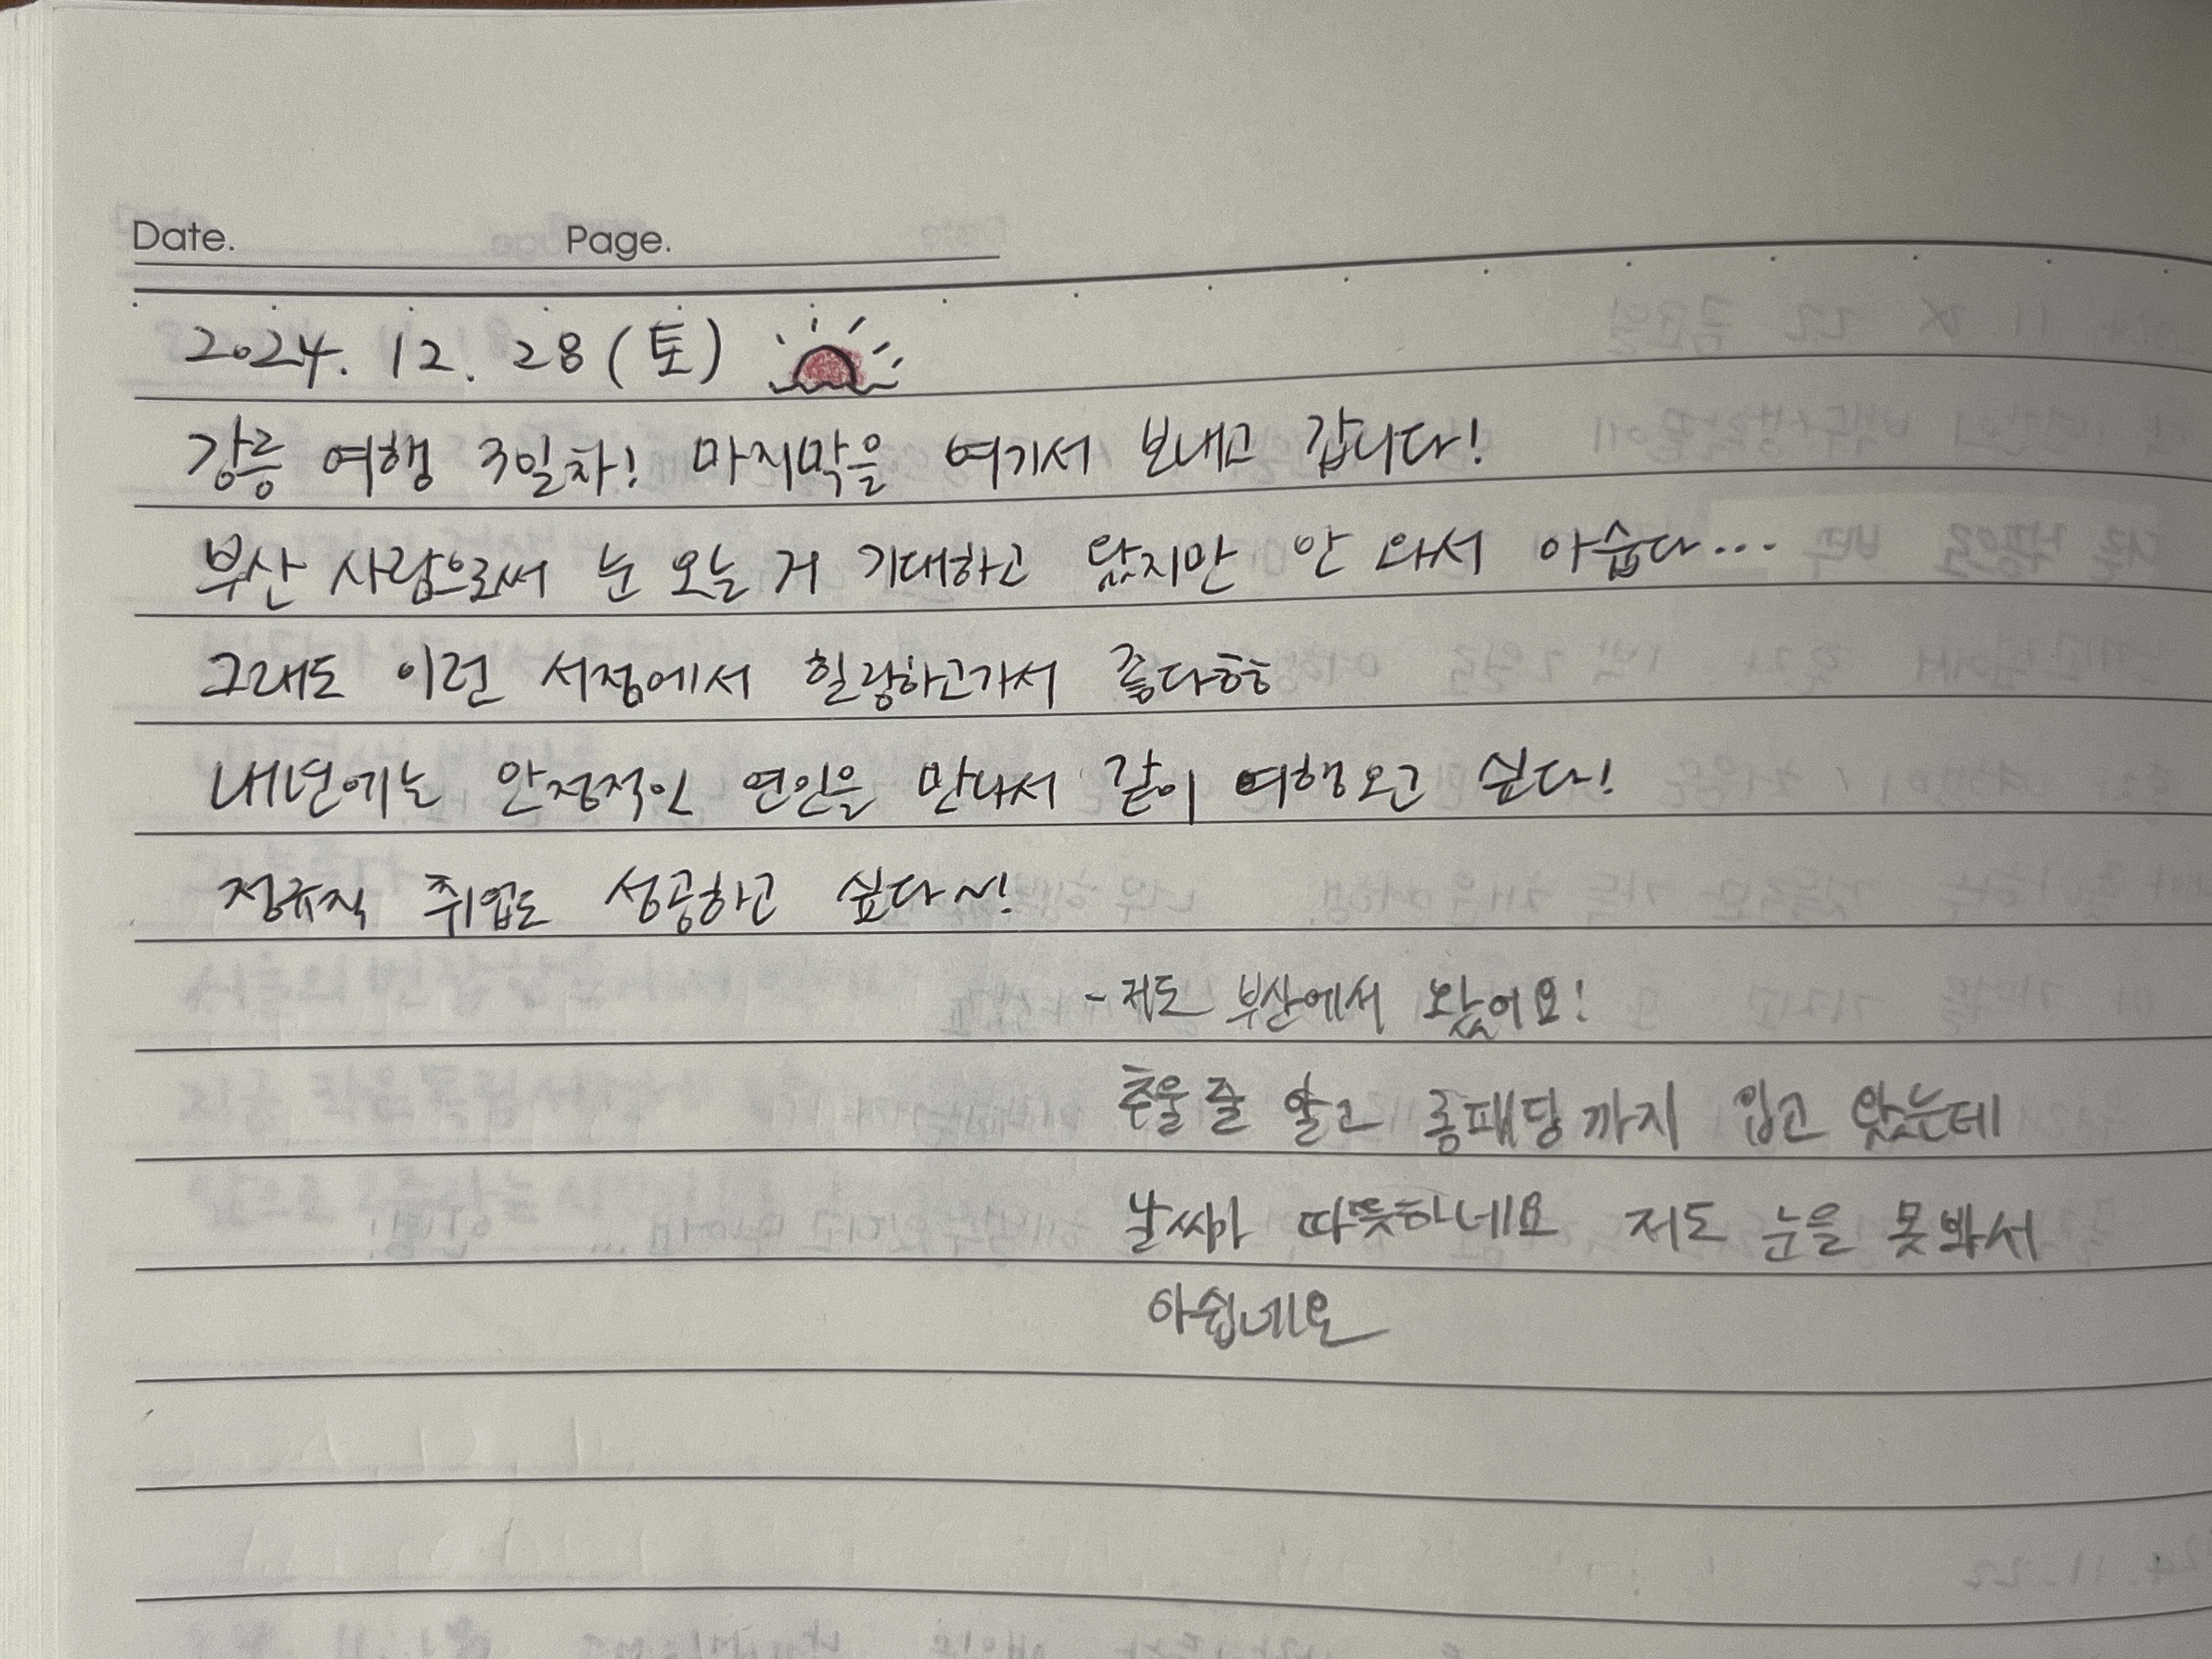 Date. Page.
2024. 12. 28 (토)
강릉 여행 3일차! 마지막을 여기서 보내고 갑니다!
부산 사람으로써 눈 오늘 거 기대하고 왔지만 안 와서 아쉽다...
그래도 이런 서점에서 힐링하고가서 좋다ㅎㅎ
내년에는 안정적인 연인을 만나서 같이 여행오고 싶다!
정규직 취업도 성공하고 싶다~!
- 저도 부산에서 왔어요!
추울 줄 알고 롱패딩까지 입고 왔는데
날씨가 따뜻하네요 저도 눈을 못봐서
아쉽네요